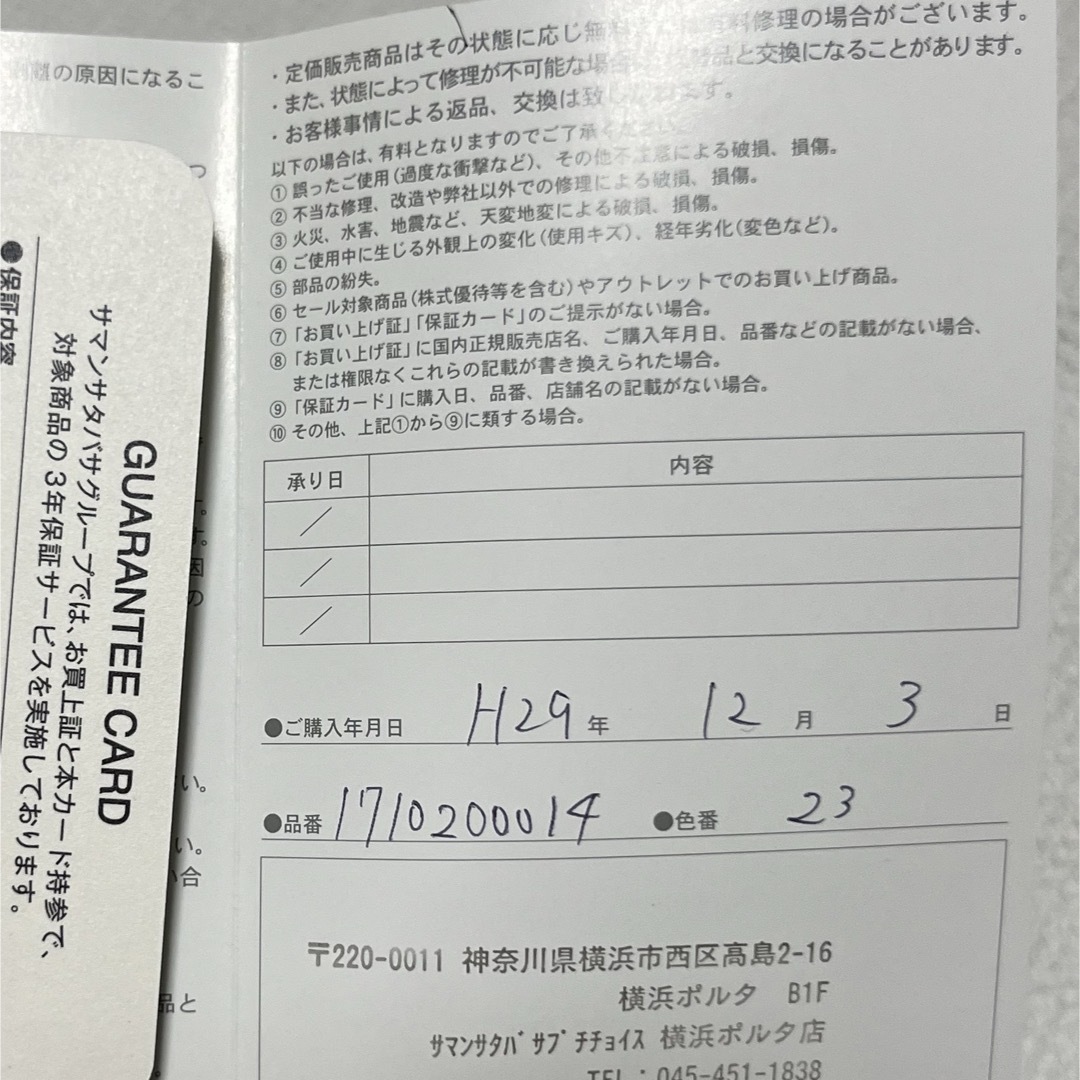 ・定価販売商品はその状態に応じ無 修理の場合がございます。
・また、状態によって修理が不可能な場合 品と交換になることがあります。
・お客様事情による返品、交換は致し ます。
以下の場合は、有料となりますのでご了承ください。
① 誤ったご使用(過度な衝撃など)、その他不注意による破損、損傷。
② 不当な修理、改造や弊社以外での修理による破損、損傷。
③ 火災、水害、地震など、天変地変による破損、損傷。
④ ご使用中に生じる外観上の変化(使用キズ)、経年劣化(変色など)。
⑤ 部品の紛失。
⑥ セール対象商品(株式優待等を含む)やアウトレットでのお買い上げ商品。
⑦ 「お買い上げ証」「保証カード」のご提示がない場合。
⑧ 「お買い上げ証」に国内正規販売店名、ご購入年月日、品番などの記載がない場合、
または権限なくこれらの記載が書き換えられた場合。
⑨ 「保証カード」に購入日、品番、店舗名の記載がない場合。
⑩ その他、上記①から⑨に類する場合。
承り日 内容
／
／
／
●ご購入年月日 H29 年 12 月 3 日
●品番 1710200014 ●色番 23
〒220-0011 神奈川県横浜市西区高島2-16
横浜ポルタ B1F
ｻﾏﾝｻﾀﾊﾞｻﾌﾟﾁﾁｮｲｽ 横浜ポルタ店
TEL:045-451-1838
の原因になるこ
GUARANTEE CARD
サマンサタバサグループでは、お買上証と本カード持参で、
対象商品の3年保証サービスを実施しております。
●保証内容
い。
い。
い合
品と